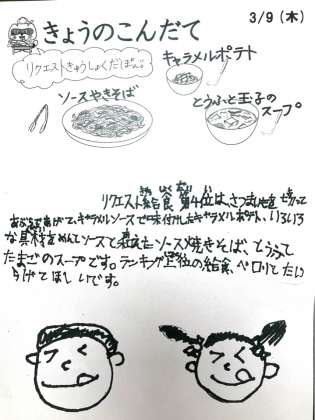 3/9(木)
きょうのこんだて
リクエストきゅうしょくだよ。
キャラメルポテト
ソースやきそば
とうふと玉子の
スープ
リクエスト給食第4位は、さつまいもを
あぶらであげて、キャラメルソースで味付けしたキャラメルポテト、いろいろ
な具材をめんてソースで炒えたソース焼きそば、とうふって
たまごのスープです。ランキング上位の給食、ペロリてたい
らげてほしいです。